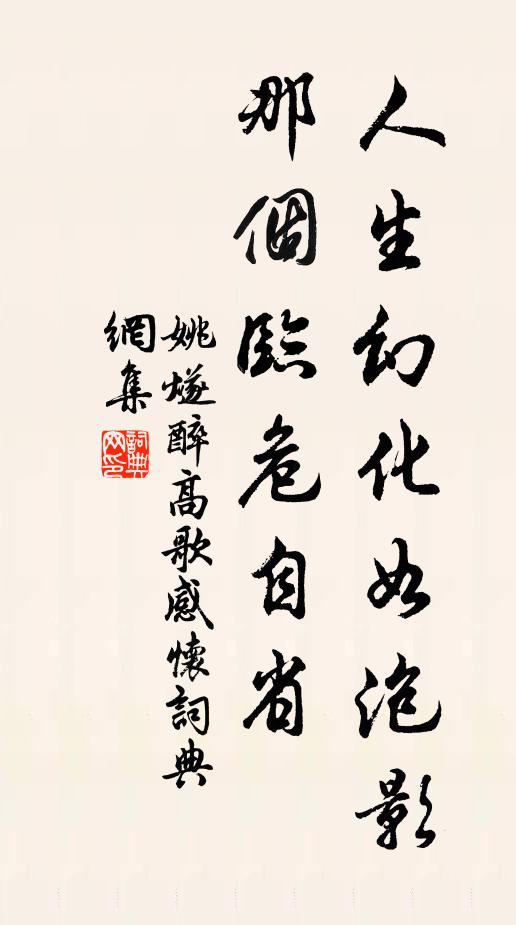 人生幻化如泡影
那個臨危自省
姚燧醉高歌感懷詞典
網集
詞典
网印